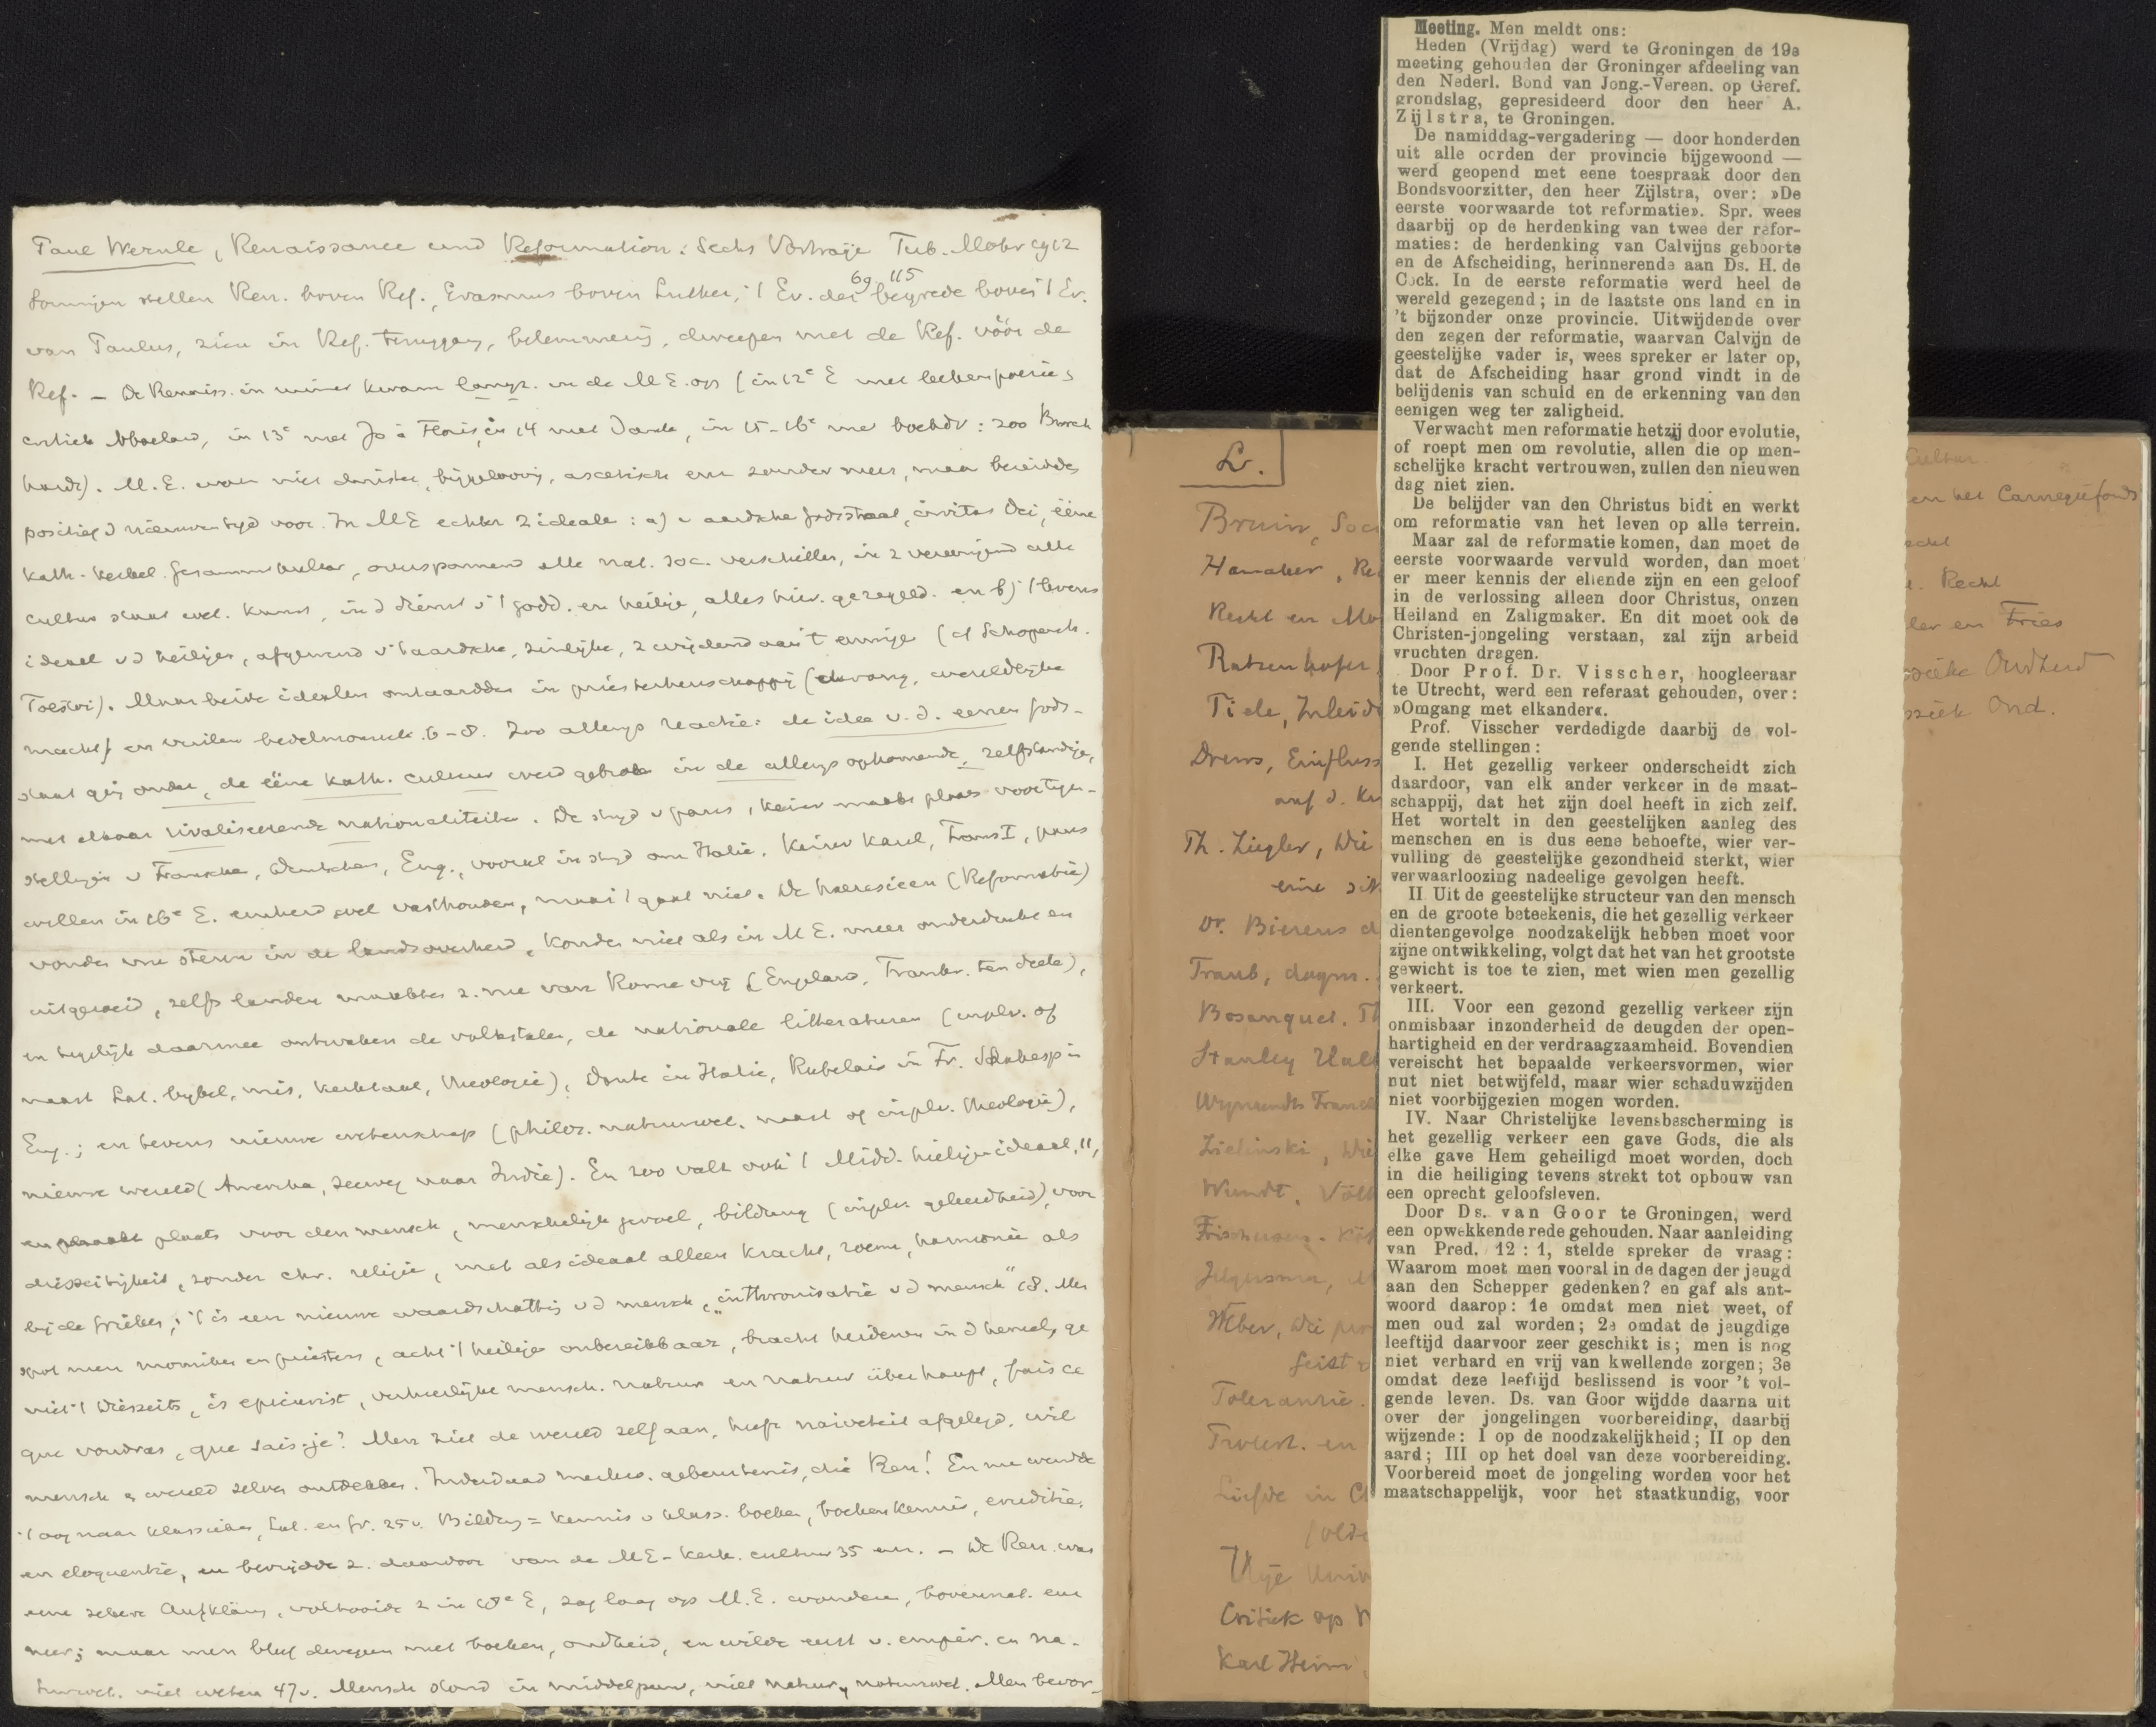 Paul Wernle, Renaissance und Reformation: Sechs Vorträge Tüb. Mohr 1912
69 115
Sommigen stellen Ren. boven Ref., Erasmus boven Luther, 't Ev. der bergrede boven 't Ev.
van Paulus, zien in Ref. teruggang, belemmering, dweepen met de Ref. vóór de
Ref. — De Renaiss. in kwam langz. in de M E. op (in 12e E met
Abaelard, in 13e met Jo a Floris, in 14 met Dante, in 15-16e
M. E. was niet duister, bijgeloovig, ascetisch enz zonder meer, maar bereidde
positief d nieuwen tijd voor. In ME echter 2 idealen: a) aardsche godsstaat, civitas Dei, ééne
kath. kerkel. overspannend alle nat. soc. verschillen,
cultus staat wet. kunst, in d dienst v 't godd. en heilige, alles geregeld. en b) 't levens
ideaal v d heilige, v 't aardsche, zinlijke, wijdend aan 't eeuwige (cf Schopenh.
Tolstoi). Maar beide idealen ontaardden in priesterheerschappij wereldlijke
macht) en 6-8. Zoo allengs reactie: de idee v. d. eenen gods-
staat ging onder, de ééne kath. cultuur werd gebroken in de allengs opkomende, zelfstandige,
met elkaar rivaliseerende nationaliteiten. De strijd v paus, keizer maakt plaats voor tegen-
stellingen v Fransche, Duitschers, Eng., vooral in strijd om Italië. Keizer Karel, Frans I, paus
willen in 16e E. eenheid wel vasthouden, maar 't gaat niet. De haeresieen (Reformatie)
vonden steun in de landsoverheid, konden niet als in M E. meer onderdrukt en
uitgeroeid, zelfs landen maakten z. nu van Rome vrij (Engeland, Frankr. ten deele),
en tegelijk daarmee ontwaken de volkstalen, de nationale litteraturen (inplv. of
naast Lat. bijbel, mis, kerktaal, theologie), Dante in Italië, Rabelais in Fr. Shakesp in
Eng.; en tevens nieuwe wetenschap (philos. natuurwet. naast of inplv. theologie),
nieuwe wereld (Amerika, zeeweg naar Indië). En zoo valt ook 't Midd. heiligenideaal, 11,
en maakt plaats voor den mensch, menschelijk gevoel, bildung (inplv. geleerdheid), voor
diesseitigkeit, zonder chr. religie, met als ideaal alleen kracht, roem, harmonie als
bij de Grieken; 't is een nieuwe waardschatting v d mensch, „inthronisatie v d mensch" 18. Men
spot met monniken en priesters, acht 't heilige onbereikbaar, bracht heidenen in d hemel,
't Diesseits, is epicurist, verheerlijkt mensch. natuur en natuur überhaupt, fais ce
que voudras, que sais-je? Men ziet de wereld zelf aan, heeft naiveteit afgelegd, wil
mensch en wereld zelven ontdekken. Inderdaad gebeurtenis, die Ren! En nu wendt
't oog naar klassieken, Lat. en Gr. 25 v. Bildung = kennis v klass. boeken, boekenkennis, eruditie,
en eloquentie, en bevrijdde z. daardoor van de ME-kerk. cultuur 35 — De Ren. was
eene zekere Aufklärung, voltooide z in 18e E, zag laag op M.E. wonderen, bovennat. enz
neer; maar men bleef dweepen met boeken, oudheid, en wilde v. empir. en na-
tuurwet. niet weten 47 v. Mensch stond in middelpunt, niet natuur, natuurwet. Men bevor-
Lv.
Bruin, Soc
Hamaker, Re
Recht en Mo
Ratzenhofer
Tiele, Inleid
Drews, Einfluss
auf d. Ku
Th. Ziegler, Die
eine sit
Dr. Bierens d
Traub, dogm.
Bosanquet. Th
Stanley Hall
Wijnaendts Franck
Zielinski, Die
Wundt, Völk
Weber, die pro
Geist
Tolerantie.
Troelt. en
Liefde in C
Critiek op
Karl Heim,
Meeting. Men meldt ons:
Heden (Vrijdag) werd te Groningen de 19e
meeting gehouden der Groninger afdeeling van
den Nederl. Bond van Jong.-Vereen. op Geref.
grondslag, gepresideerd door den heer A.
Zijlstra, te Groningen.
De namiddag-vergadering — door honderden
uit alle oorden der provincie bijgewoond —
werd geopend met eene toespraak door den
Bondsvoorzitter, den heer Zijlstra, over: »De
eerste voorwaarde tot reformatie». Spr. wees
daarbij op de herdenking van twee der refor-
maties: de herdenking van Calvijns geboorte
en de Afscheiding, herinnerende aan Ds. H. de
Cock. In de eerste reformatie werd heel de
wereld gezegend; in de laatste ons land en in
't bijzonder onze provincie. Uitwijdende over
den zegen der reformatie, waarvan Calvijn de
geestelijke vader is, wees spreker er later op,
dat de Afscheiding haar grond vindt in de
belijdenis van schuld en de erkenning van den
eenigen weg ter zaligheid.
Verwacht men reformatie hetzij door evolutie,
of roept men om revolutie, allen die op men-
schelijke kracht vertrouwen, zullen den nieuwen
dag niet zien.
De belijder van den Christus bidt en werkt
om reformatie van het leven op alle terrein.
Maar zal de reformatie komen, dan moet de
eerste voorwaarde vervuld worden, dan moet
er meer kennis der ellende zijn en een geloof
in de verlossing alleen door Christus, onzen
Heiland en Zaligmaker. En dit moet ook de
Christen-jongeling verstaan, zal zijn arbeid
vruchten dragen.
Door Prof. Dr. Visscher, hoogleeraar
te Utrecht, werd een referaat gehouden, over:
»Omgang met elkander«.
Prof. Visscher verdedigde daarbij de vol-
gende stellingen:
I. Het gezellig verkeer onderscheidt zich
daardoor, van elk ander verkeer in de maat-
schappij, dat het zijn doel heeft in zich zelf.
Het wortelt in den geestelijken aanleg des
menschen en is dus eene behoefte, wier ver-
vulling de geestelijke gezondheid sterkt, wier
verwaarloozing nadeelige gevolgen heeft.
II Uit de geestelijke structuur van den mensch
en de groote beteekenis, die het gezellig verkeer
dientengevolge noodzakelijk hebben moet voor
zijne ontwikkeling, volgt dat het van het grootste
gewicht is toe te zien, met wien men gezellig
verkeert.
III. Voor een gezond gezellig verkeer zijn
onmisbaar inzonderheid de deugden der open-
hartigheid en der verdraagzaamheid. Bovendien
vereischt het bepaalde verkeersvormen, wier
nut niet betwijfeld, maar wier schaduwzijden
niet voorbijgezien mogen worden.
IV. Naar Christelijke levensbescherming is
het gezellig verkeer een gave Gods, die als
elke gave Hem geheiligd moet worden, doch
in die heiliging tevens strekt tot opbouw van
een oprecht geloofsleven.
Door Ds. van Goor te Groningen, werd
een opwekkende rede gehouden. Naar aanleiding
van Pred. 12 : 1, stelde spreker de vraag:
Waarom moet men vooral in de dagen der jeugd
aan den Schepper gedenken? en gaf als ant-
woord daarop: 1e omdat men niet weet, of
men oud zal worden; 2e omdat de jeugdige
leeftijd daarvoor zeer geschikt is; men is nog
niet verhard en vrij van kwellende zorgen; 3e
omdat deze leeftijd beslissend is voor 't vol-
gende leven. Ds. van Goor wijdde daarna uit
over der jongelingen voorbereiding, daarbij
wijzende: I op de noodzakelijkheid; II op den
aard; III op het doel van deze voorbereiding.
Voorbereid moet de jongeling worden voor het
maatschappelijk, voor het staatkundig, voor
Cultuur
en het Carnegiefonds
Recht
en Fries
Oudheid
Oud.